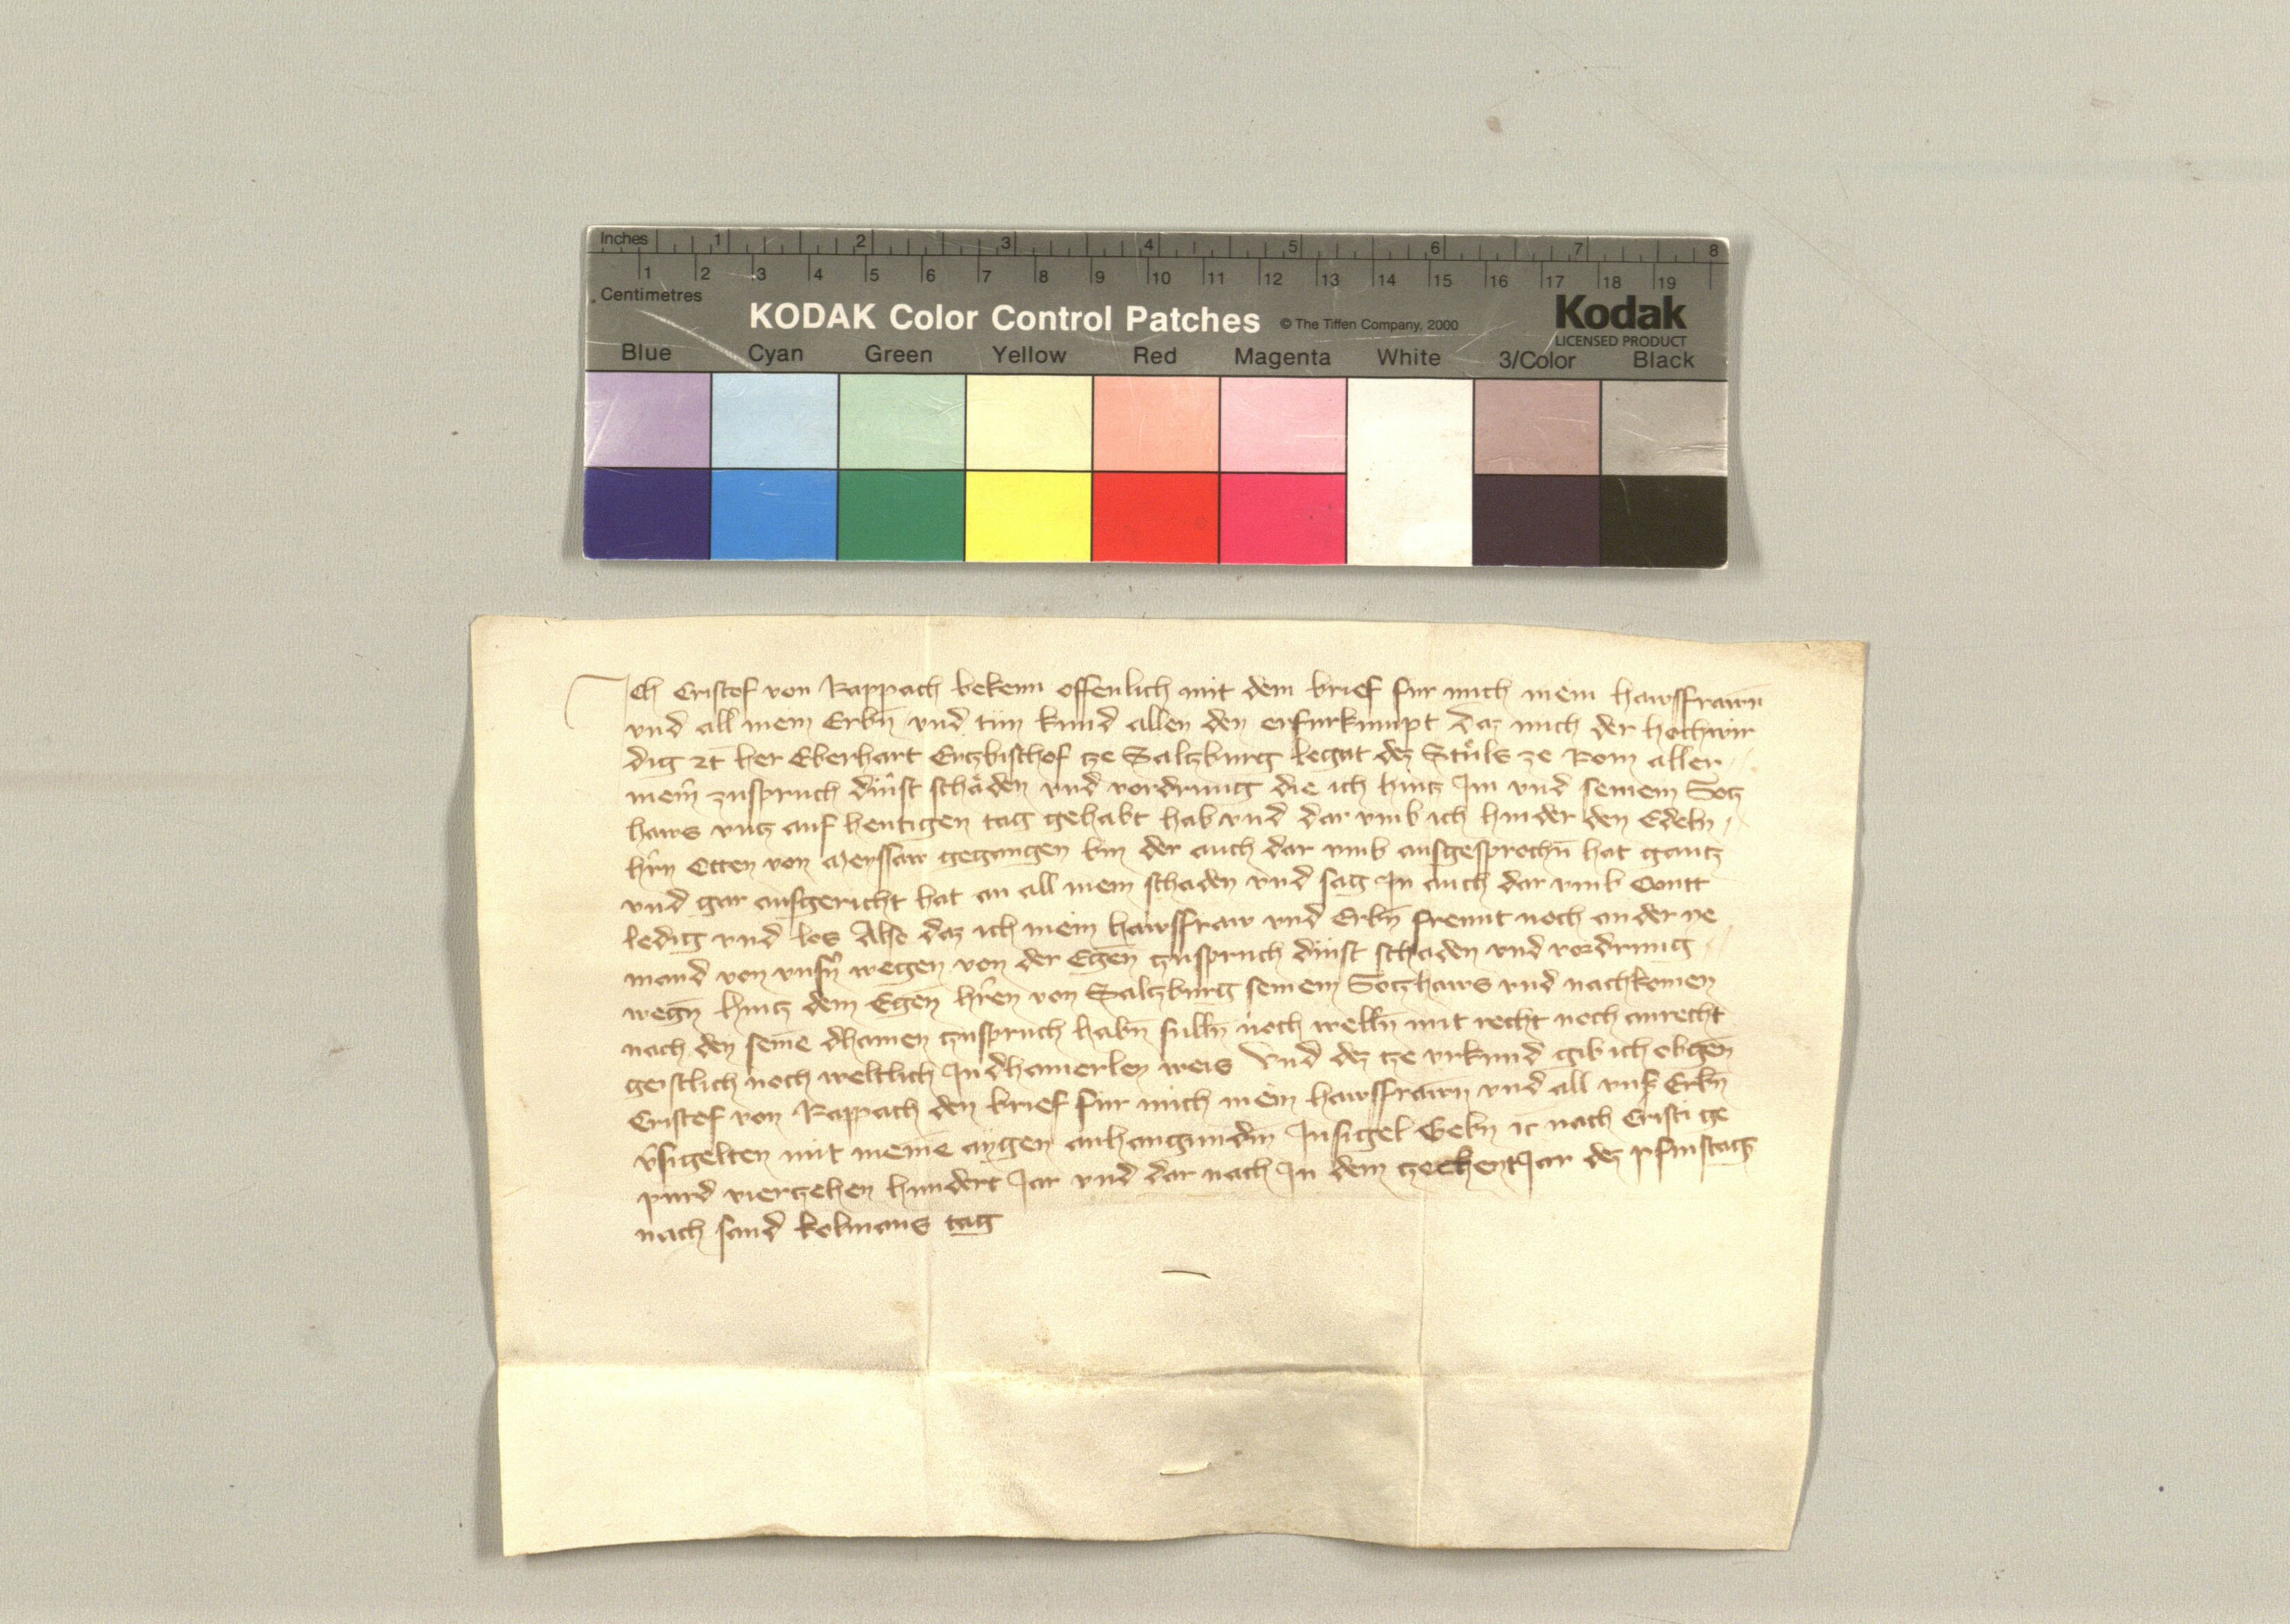 Inches 1 2 3 4 5 6 7 8
1 2 3 4 5 6 7 8 9 10 11 12 13 14 15 16 17 18 19
Centimetres
KODAK Color Control Patches © The Tiffen Company, 2000 Kodak
LICENSED PRODUCT
Blue Cyan Green Yellow Red Magenta White 3/Color Black
Ich Cristof von Rappach bekenn offenlich mit dem brief fur mich mein hawsfrawn
vnd all mein Erbn̄ vnd tun kund allen den er furkumpt daz mich der hochwir
dig her Eberhart Ertzbischof tze Saltzburg legat dez Stůls ze Rom aller
meiner zuspruch dinst schäden vnd vordrung die ich hintz Im vnd seinem Gotz
haws vntz auf hewtigen tag gehabt hab vnd dar vmb ich hinder den Edeln
hrn̄ Otten von Meyssaw gegangen bin der auch dar vmb ausgesprochn̄ hat gantz
vnd gar ausgericht hat an all mein schaden vnd sag In auch dar vmb Quitt
ledig vnd los Also daz ich mein hawsfraw vnd Erbn̄ frewnt noch ander ye
mand von vnsn̄ wegen von der Egen̄ zuspruch dinst schaden vnd vordrung
wegn̄ hintz dem Egen̄ hr̄en von Saltzburg seinem Gotzhaws vnd nachkomen
nach den seinē dhainen zuspruch habn̄ sulln̄ noch welln̄ mit recht noch anrecht
geistlich noch weltlich In dhainerley weis Vnd dez tze vrkund gib ich obgen̄
Cristof von Rappach den brief fur mich mein hawsfrawn vnd all vnser Erbn̄
v̄sigelten mit meinē aygen anhangundm̄ Insigel Gebn̄ nach Cristi ge
purd viertzehen hundert Jar vnd dar nach In dem tzechent Jar dez Pfinstag
nach sand kolmans tag